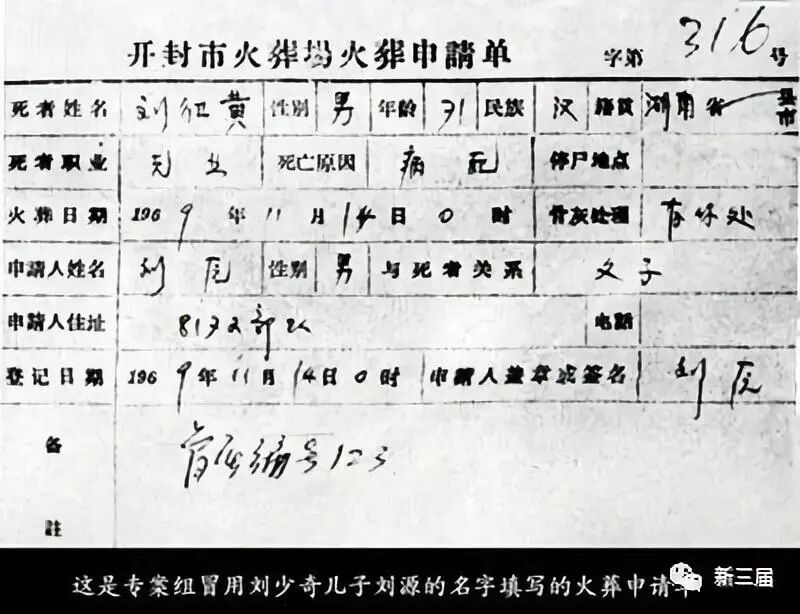 开封市火葬場火葬申請单 字第 316 号
死者姓名 刘卫黄 性别 男 年龄 71 民族 汉 籍贯 湖南省 县市
死者职业 无业 死亡原因 病死 停尸地点
火葬日期 1969年11月14日0时 骨灰处理 存 处
申請人姓名 刘原 性别 男 与死者关系 父子
申請人住址 8172部队 电話
登记日期 1969年11月14日0时 申請人盖章或签名 刘原
备註 骨灰编号123
这是专案组冒用刘少奇儿子刘源的名字填写的火葬申请单
新三届